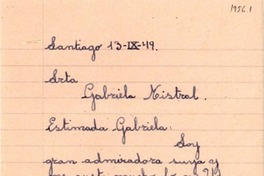 1956.1
Santiago 13-IX-49.
Srta
Gabriela Mistral.
Estimada Gabriela:
Soy
gran admiradora suya y